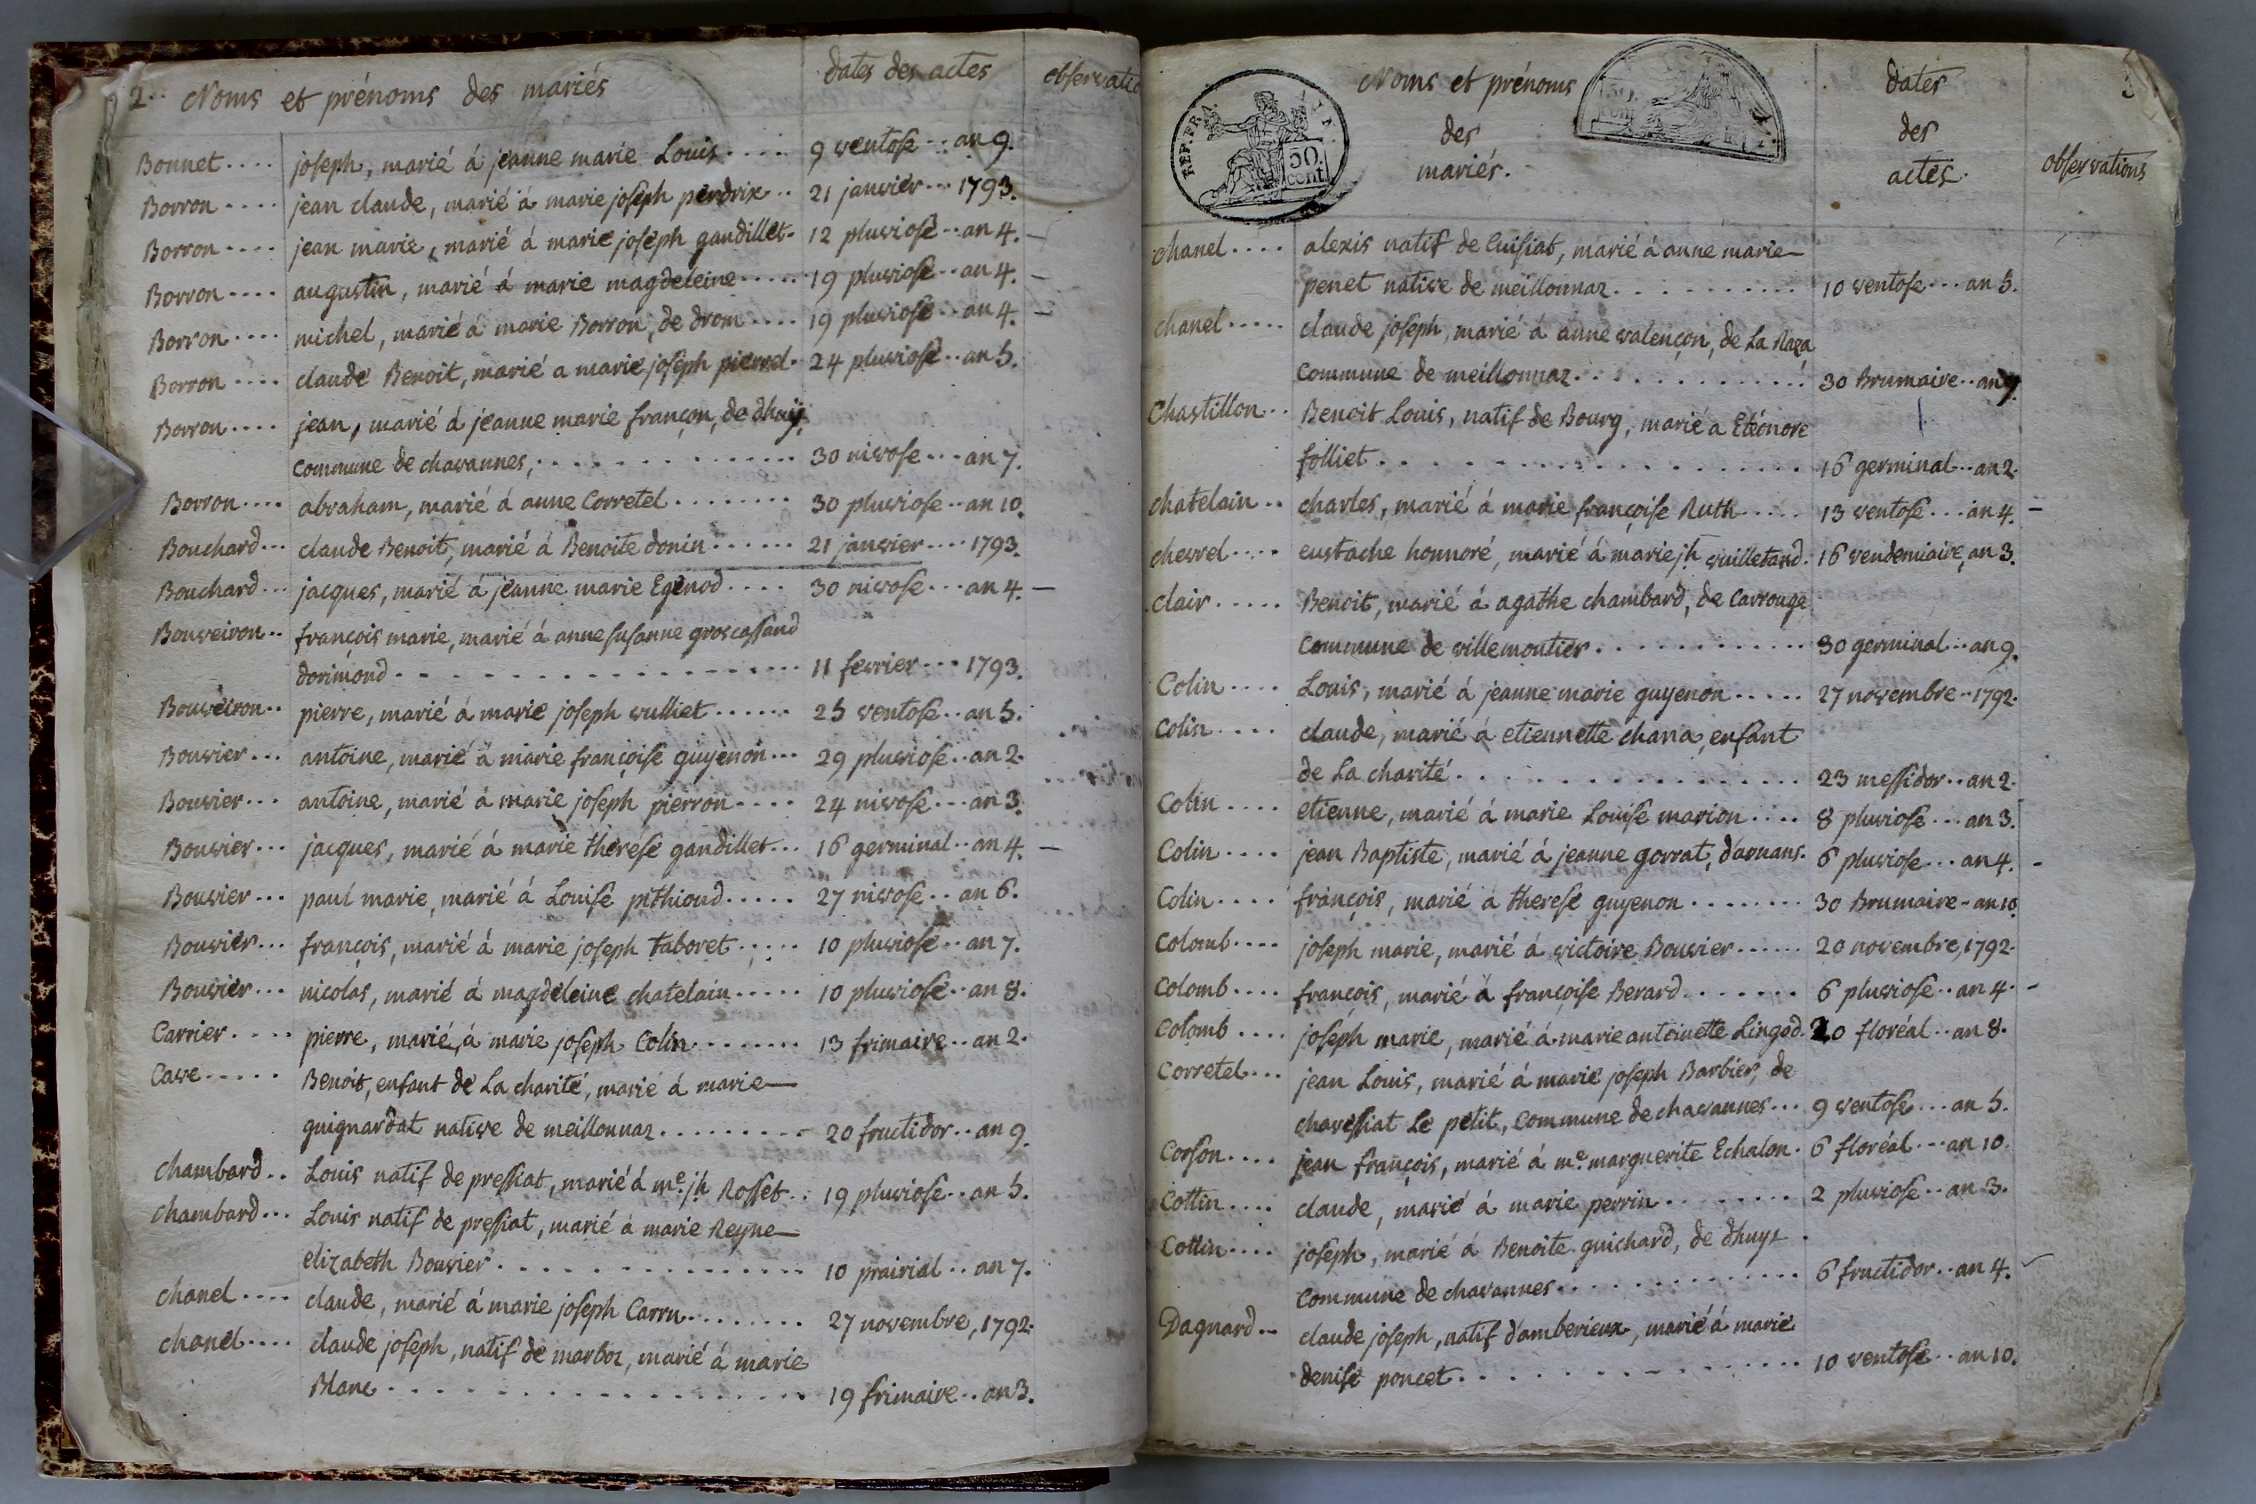 2. Noms et prénoms des mariés dates des actes observatio
Bonnet.... joseph, marié á jeanne marie Louis.... 9 ventose... an 9.
Borron.... jean claude, marié á marie joseph perdrix.. 21 janvier... 1793.
Borron.... jean marie, marié á marie joseph gandillet. 12 pluviose.. an 4. —
Borron.... augustin, marié á marie magdeleine..... 19 pluviose.. an 4. —
Borron.... michel, marié á marie Borron, de drom.... 19 pluviose.. an 4. —
Borron.... claude Benoit, marié a marie joseph pierrel. 24 pluviose.. an 5.
Borron.... jean, marié á jeanne marie françon, de dhuÿ,
commune de chavannes,.............. 30 nivose... an 7.
Borron.... abraham, marié á anne Corretel........ 30 pluviose.. an 10.
Bouchard... claude Benoit, marié á Benoite donin...... 21 janvier.... 1793.
Bouchard... jacques, marié á jeanne marie Egénod.... 30 nivose... an 4. —
Bouveiron.. françois marie, marié á anne susanne groscassand
dorimond.................. 11 fevrier... 1793.
Bouveiron.. pierre, marié á marie joseph vulliet...... 25 ventose.. an 5.
Bouvier... antoine, marié á marie françoise guyenon... 29 pluviose.. an 2.
Bouvier... antoine, marié á marie joseph pierron.... 24 nivose... an 3.
Bouvier... jacques, marié á marie thérése gandillet... 16 germinal.. an 4. —
Bouvier... paul marie, marié á Louise pithioud..... 27 nivose.. an 6.
Bouvier... françois, marié á marie joseph taboret..... 10 pluviose.. an 7.
Bouvier... nicolas, marié á magdeleine chatelain..... 10 pluviose.. an 8.
Carrier.... pierre, marié, á marie joseph Colin........ 13 frimaire.. an 2.
Cave..... Benoit, enfant de La charité, marié á marie—
guignardat native de meillonnaz......... 20 fructidor.. an 9.
chambard.. Louis natif de pressiat, marié á me. jh Rosset.. 19 pluviose.. an 5.
chambard... Louis natif de pressiat, marié a marie Reyne—
elizabeth Bouvier............... 10 prairial.. an 7.
chanel.... claude, marié á marie joseph Carru........ 27 novembre, 1792.
chanel.... claude joseph, natif de marboz, marié á marie
Blanc................... 19 frimaire.. an 3.
REP. FRA.
50. cent.
Noms et prénoms
des
mariés.
dates
des
actes.
observations
3
chanel.... alexis natif de Cuisiat, marié á anne marie—
penet native de meillonnaz.......... 10 ventose... an 5.
chanel..... claude joseph, marié á anne valençon, de La Raza
commune de meillonnaz............ 30 Brumaire.. an 7.
Chastillon.. Benoit Louis, natif de Bourg, marié a Eléonore
folliet................. 16 germinal.. an 2.
chatelain.. charles, marié á marie françoise Ruth..... 13 ventose... an 4. —
chevrel.... eustache honnoré, marié á marie jh vuilletand. 16 vendemiaire, an 3.
clair..... Benoit, marié á agathe chambard, de Carrouge
commune de villemoutier............ 30 germinal.. an 9.
Colin.... Louis, marié á jeanne marie guyenon..... 27 novembre.. 1792.
Colin.... claude, marié á etiennette chana, enfant
de La charité................ 23 messidor.. an 2.
Colin.... etienne, marié á marie Louise marion.... 8 pluviose... an 3.
Colin.... jean Baptiste, marié á jeanne gorrat, d'arnans. 6 pluviose... an 4. -
Colin.... françois, marié a therese guyenon........ 30 Brumaire - an 10.
Colomb.... joseph marie, marié á victoire Bouvier...... 20 novembre, 1792.
Colomb.... françois, marié á françoise Berard....... 6 pluviose.. an 4. -
Colomb.... joseph marie, marié á marie antoinette Lingod. 20 floréal.. an 8.
Corretel... jean Louis, marié á marie joseph Barbier, de
chavessiat Le petit, commune de chavannes... 9 ventose... an 5.
Corson.... jean françois, marié á me. marguerite Echalon. 6 floréal... an 10.
Cottin.... claude, marié á marie perrin........ 2 pluviose.. an 3.
Cottin.... joseph, marié á Benoite guichard, de dhuys
commune de chavannes.............. 6 fructidor.. an 4. -
Dagnard... claude joseph, natif d'amberieux, marié á marie
denise poncet................ 10 ventose.. an 10.